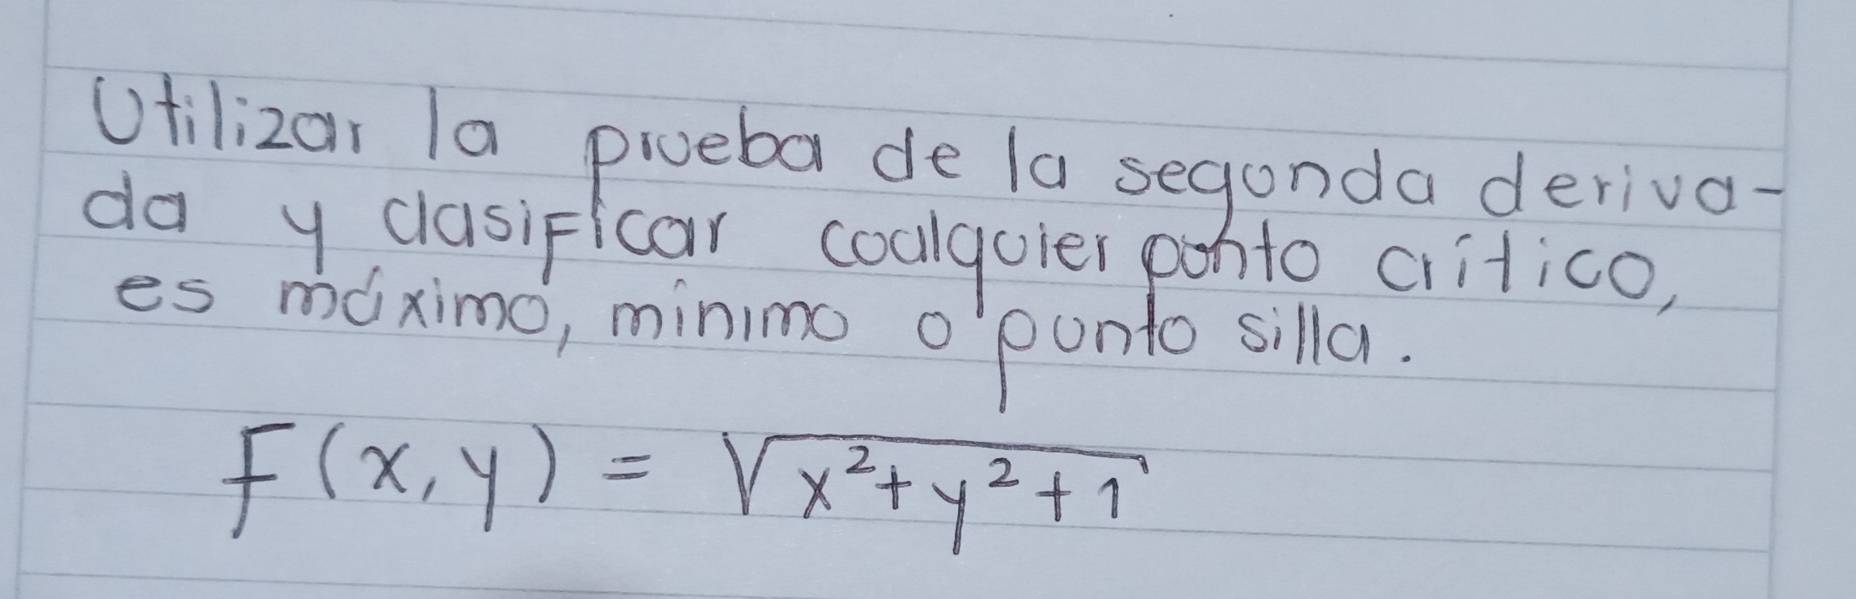 Utilizar la prueba de la segunda deriva-
da y clasificar cualquier punto crítico,
es máximo, mínimo o punto silla.
f(x,y) = √x²+y²+1